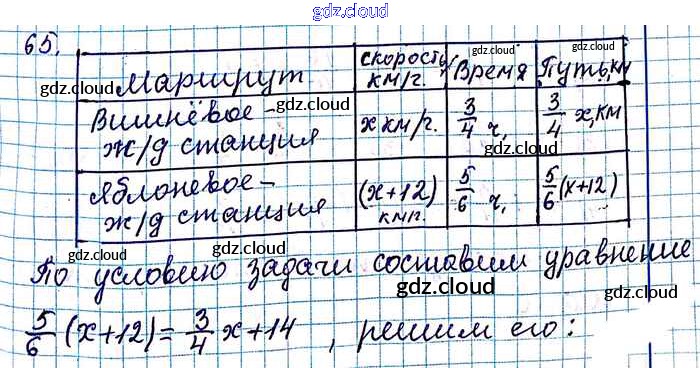 gdz.cloud
65.
Маршрут скорость, км/г. Время Путь, км
Вишнёвое – ж/д станция x км/г. 3/4 ч, 3/4 x, км
Яблоневое – ж/д станция (x+12) км/г. 5/6 ч, 5/6 (x+12)
По условию задачи составим уравнение
5/6 (x+12) = 3/4 x + 14 , решим его:
gdz.cloud
gdz.cloud
gdz.cloud
gdz.cloud
gdz.cloud
gdz.cloud
gdz.cloud
gdz.cloud
gdz.cloud
gdz.cloud
gdz.cloud